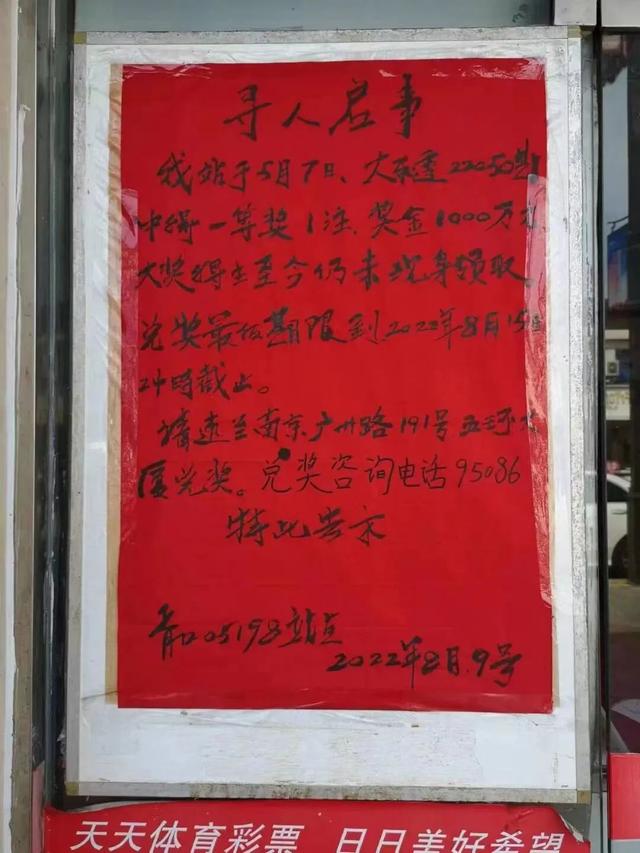 寻人启事
我站于5月7日、大乐透22050期
中得一等奖1注、奖金1000万元、
大奖得主至今仍未现身领取。
兑奖最后期限到2022年8月15日
24时截止。
请速至南京广州路191号五环大
厦兑奖。兑奖咨询电话95086
特此告示
05198站点
2022年8月9号
天天体育彩票 日日美好希望